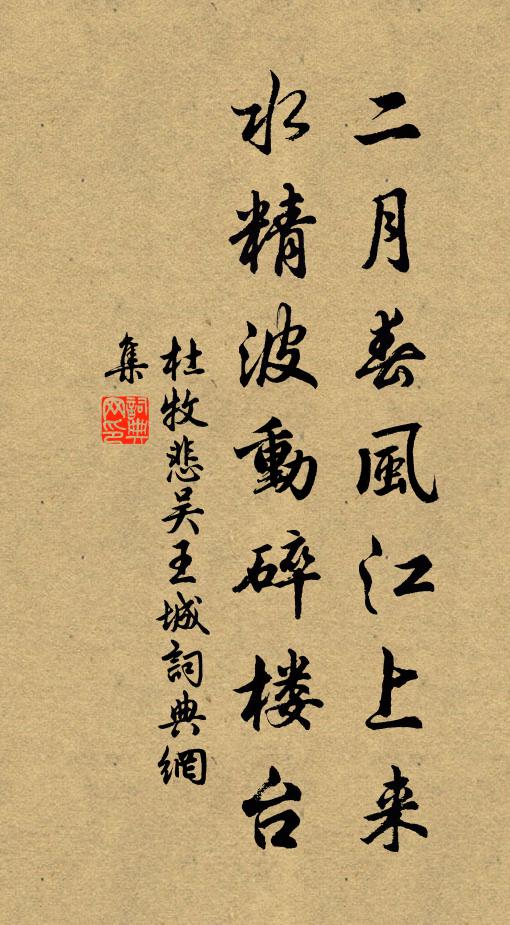 二月春風江上来
水精波動碎楼台
杜牧悲吴王城詞典網
集
詞典
网印